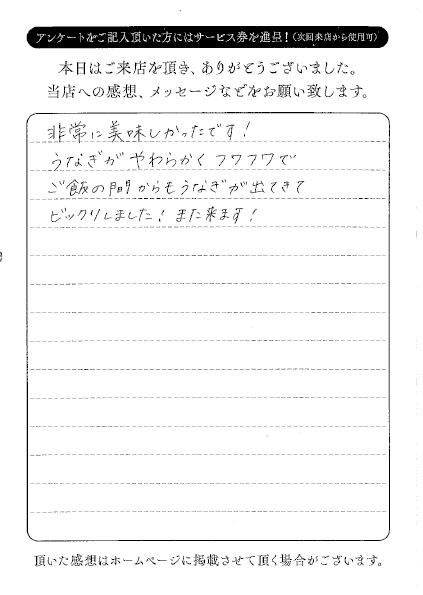 アンケートをご記入頂いた方にはサービス券を進呈！（次回来店から使用可）
本日はご来店を頂き、ありがとうございました。
当店への感想、メッセージなどをお願い致します。
非常に美味しかったです！
うなぎがやわらかくフワフワで
ご飯の間からもうなぎが出てきて
ビックリしました！また来ます！
頂いた感想はホームページに掲載させて頂く場合がございます。